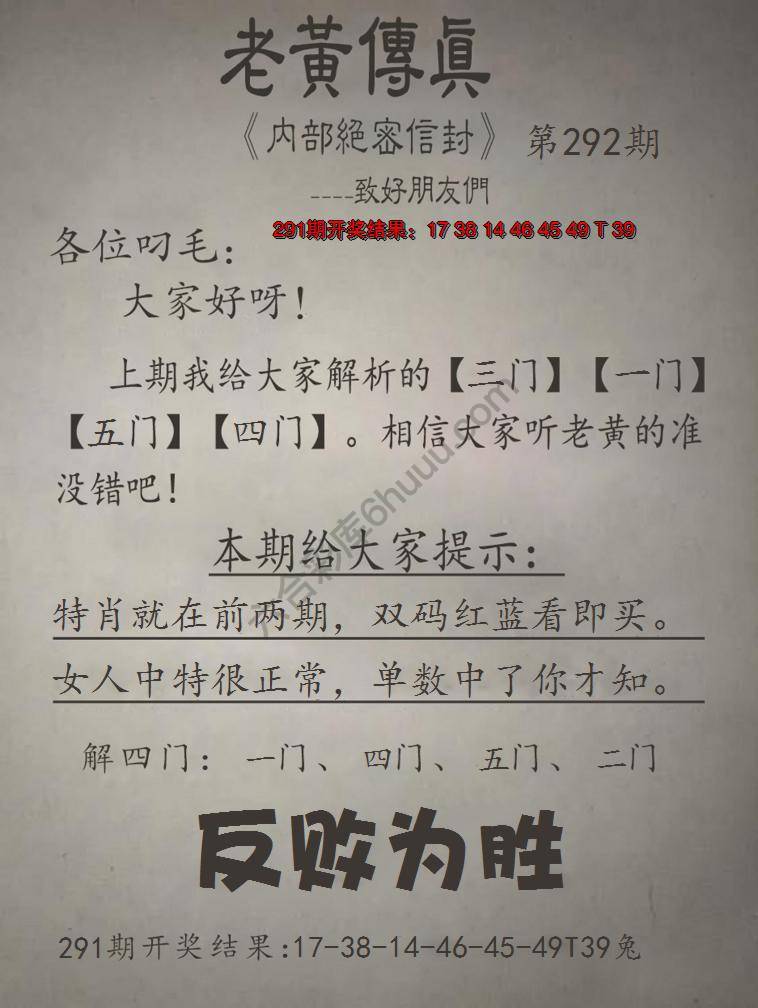 老黃傳眞
《内部絕密信封》 第292期
----致好朋友們
291期开奖结果：17 38 14 46 45 49 T 39
各位叼毛：
大家好呀！
上期我给大家解析的【三门】【一门】
【五门】【四门】。相信大家听老黄的准
没错吧！
六合彩库6huuu.com
本期给大家提示：
特肖就在前两期，双码红蓝看即买。
女人中特很正常，单数中了你才知。
解四门：一门、四门、五门、二门
反败为胜
291期开奖结果:17-38-14-46-45-49T39兔